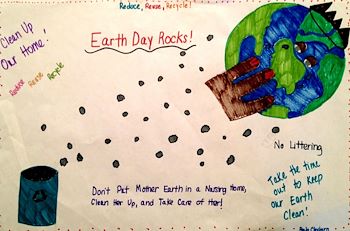 Reduce, Reuse, Recycle!
Clean Up
Our Home!
Reduce Reuse Recycle
Earth Day Rocks!
No Littering
Take the time
out to keep
our Earth
Clean!
Don't Put Mother Earth in a Nursing Home,
Clean Her Up, and Take Care of Her!